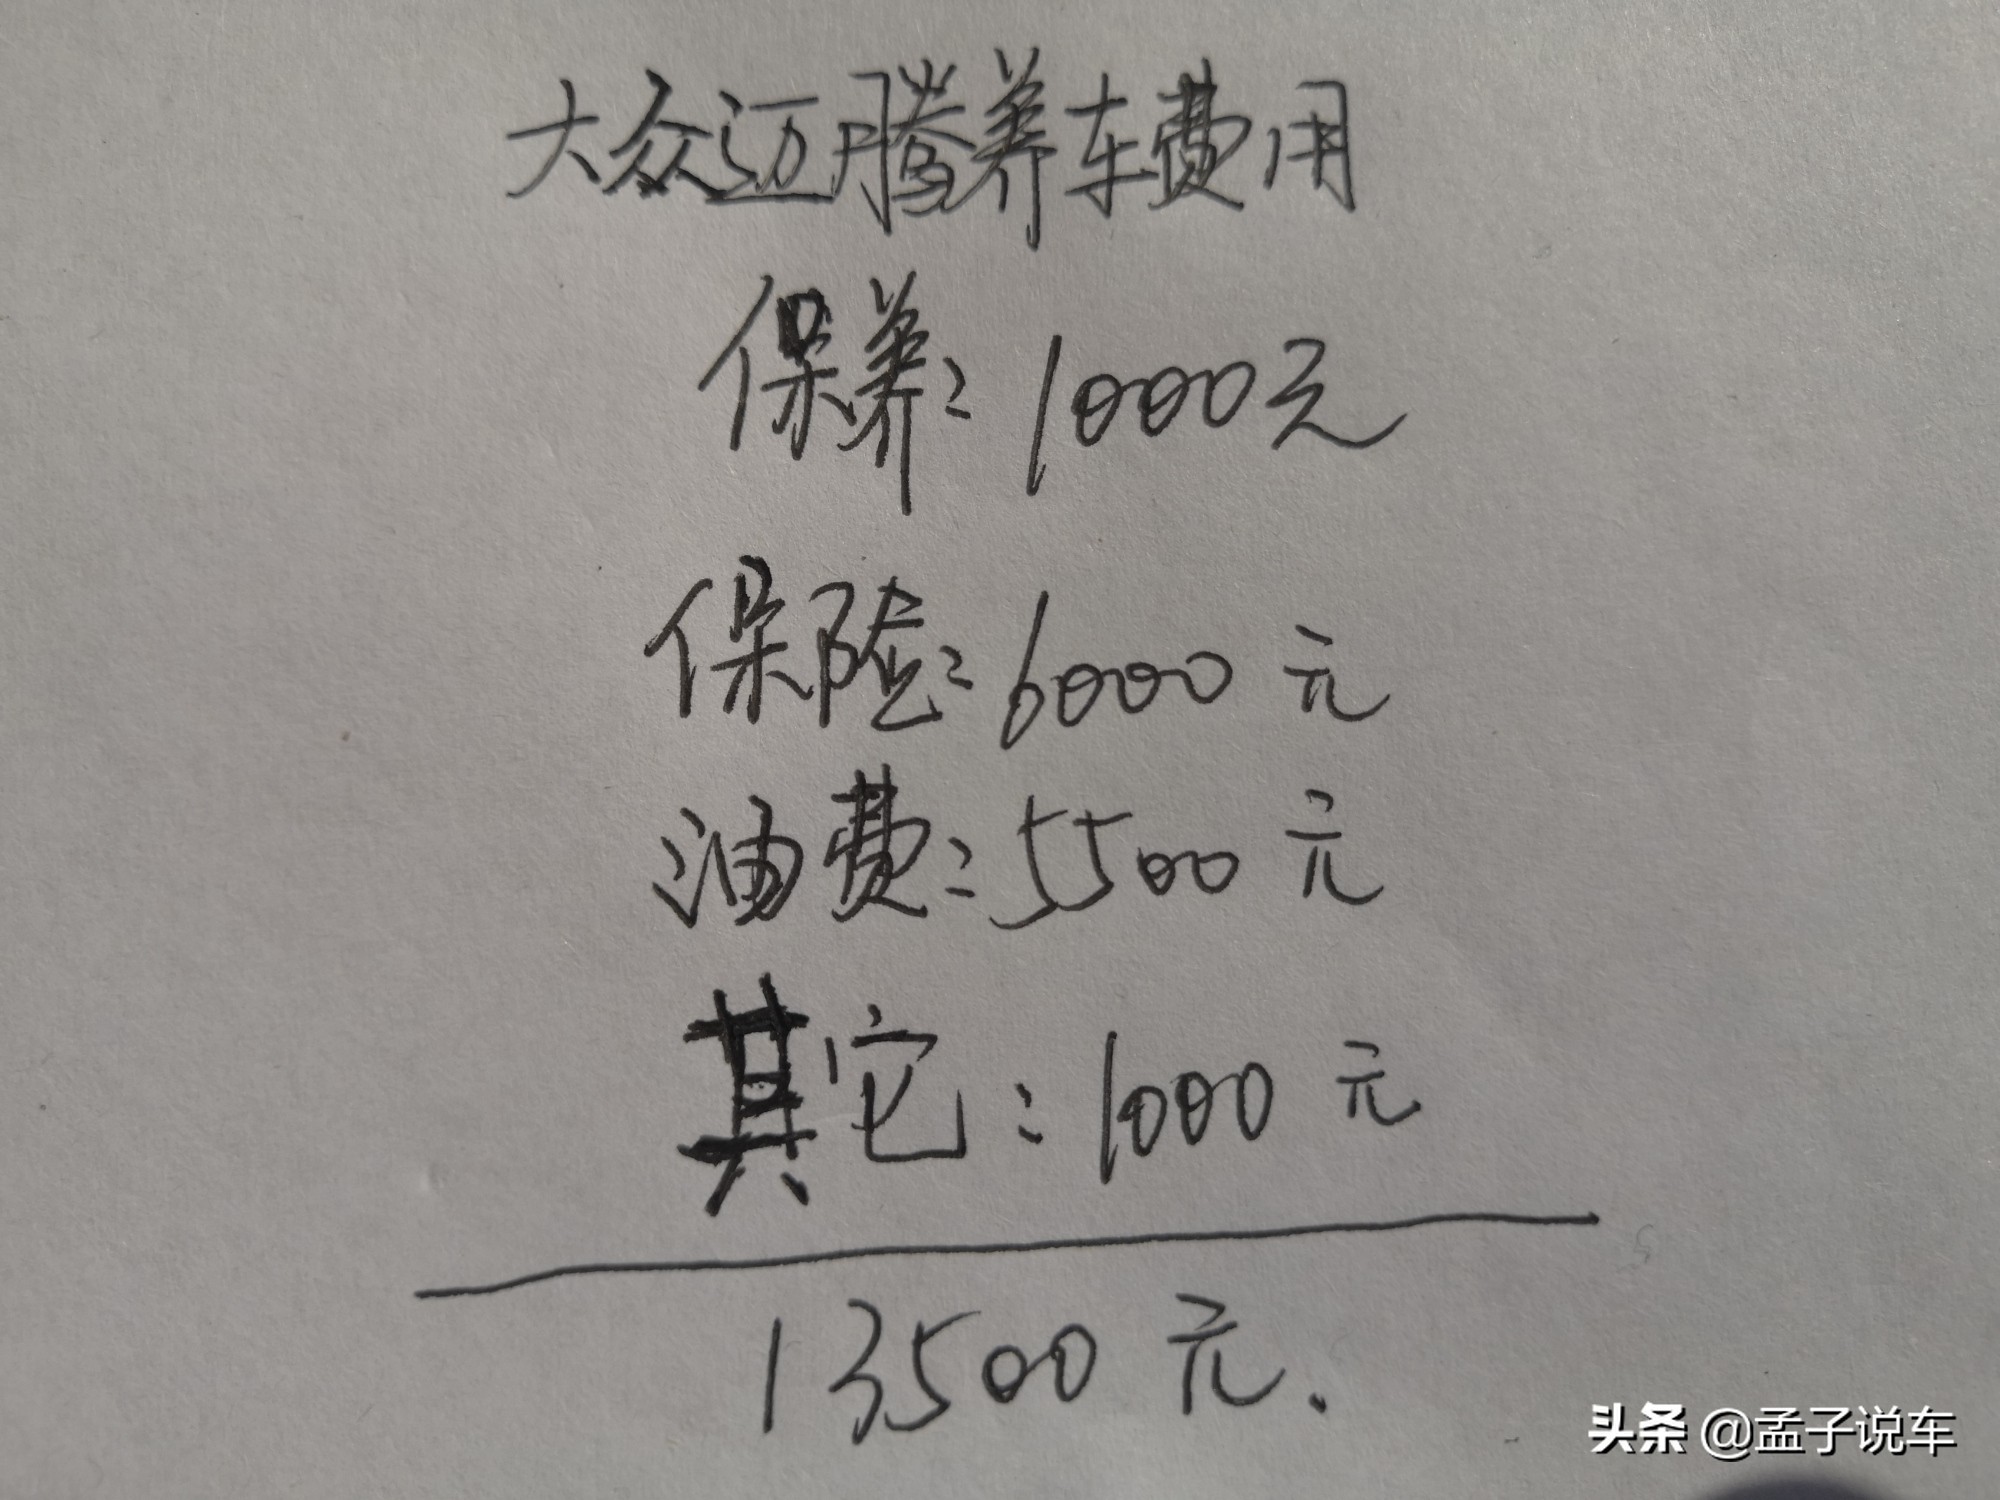 大众迈腾养车费用
保养：1000元
保险：6000元
油费：5500元
其它：1000元
13500元.
头条 @孟子说车